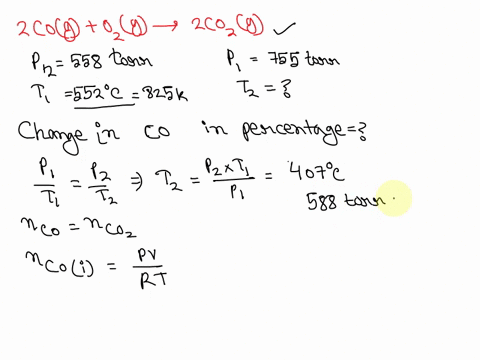 2CO(g) + O2(g) → 2CO2(g) ✓
P12 = 558 torr P1 = 755 torr
T1 = 552°C = 825k T2 = ?
Change in CO in percentage = ?
P1/T1 = P2/T2 ⇒ T2 = P2 × T1/P1 = 407°C
588 torr
nCO = nCO2
nCO(i) = PV/RT